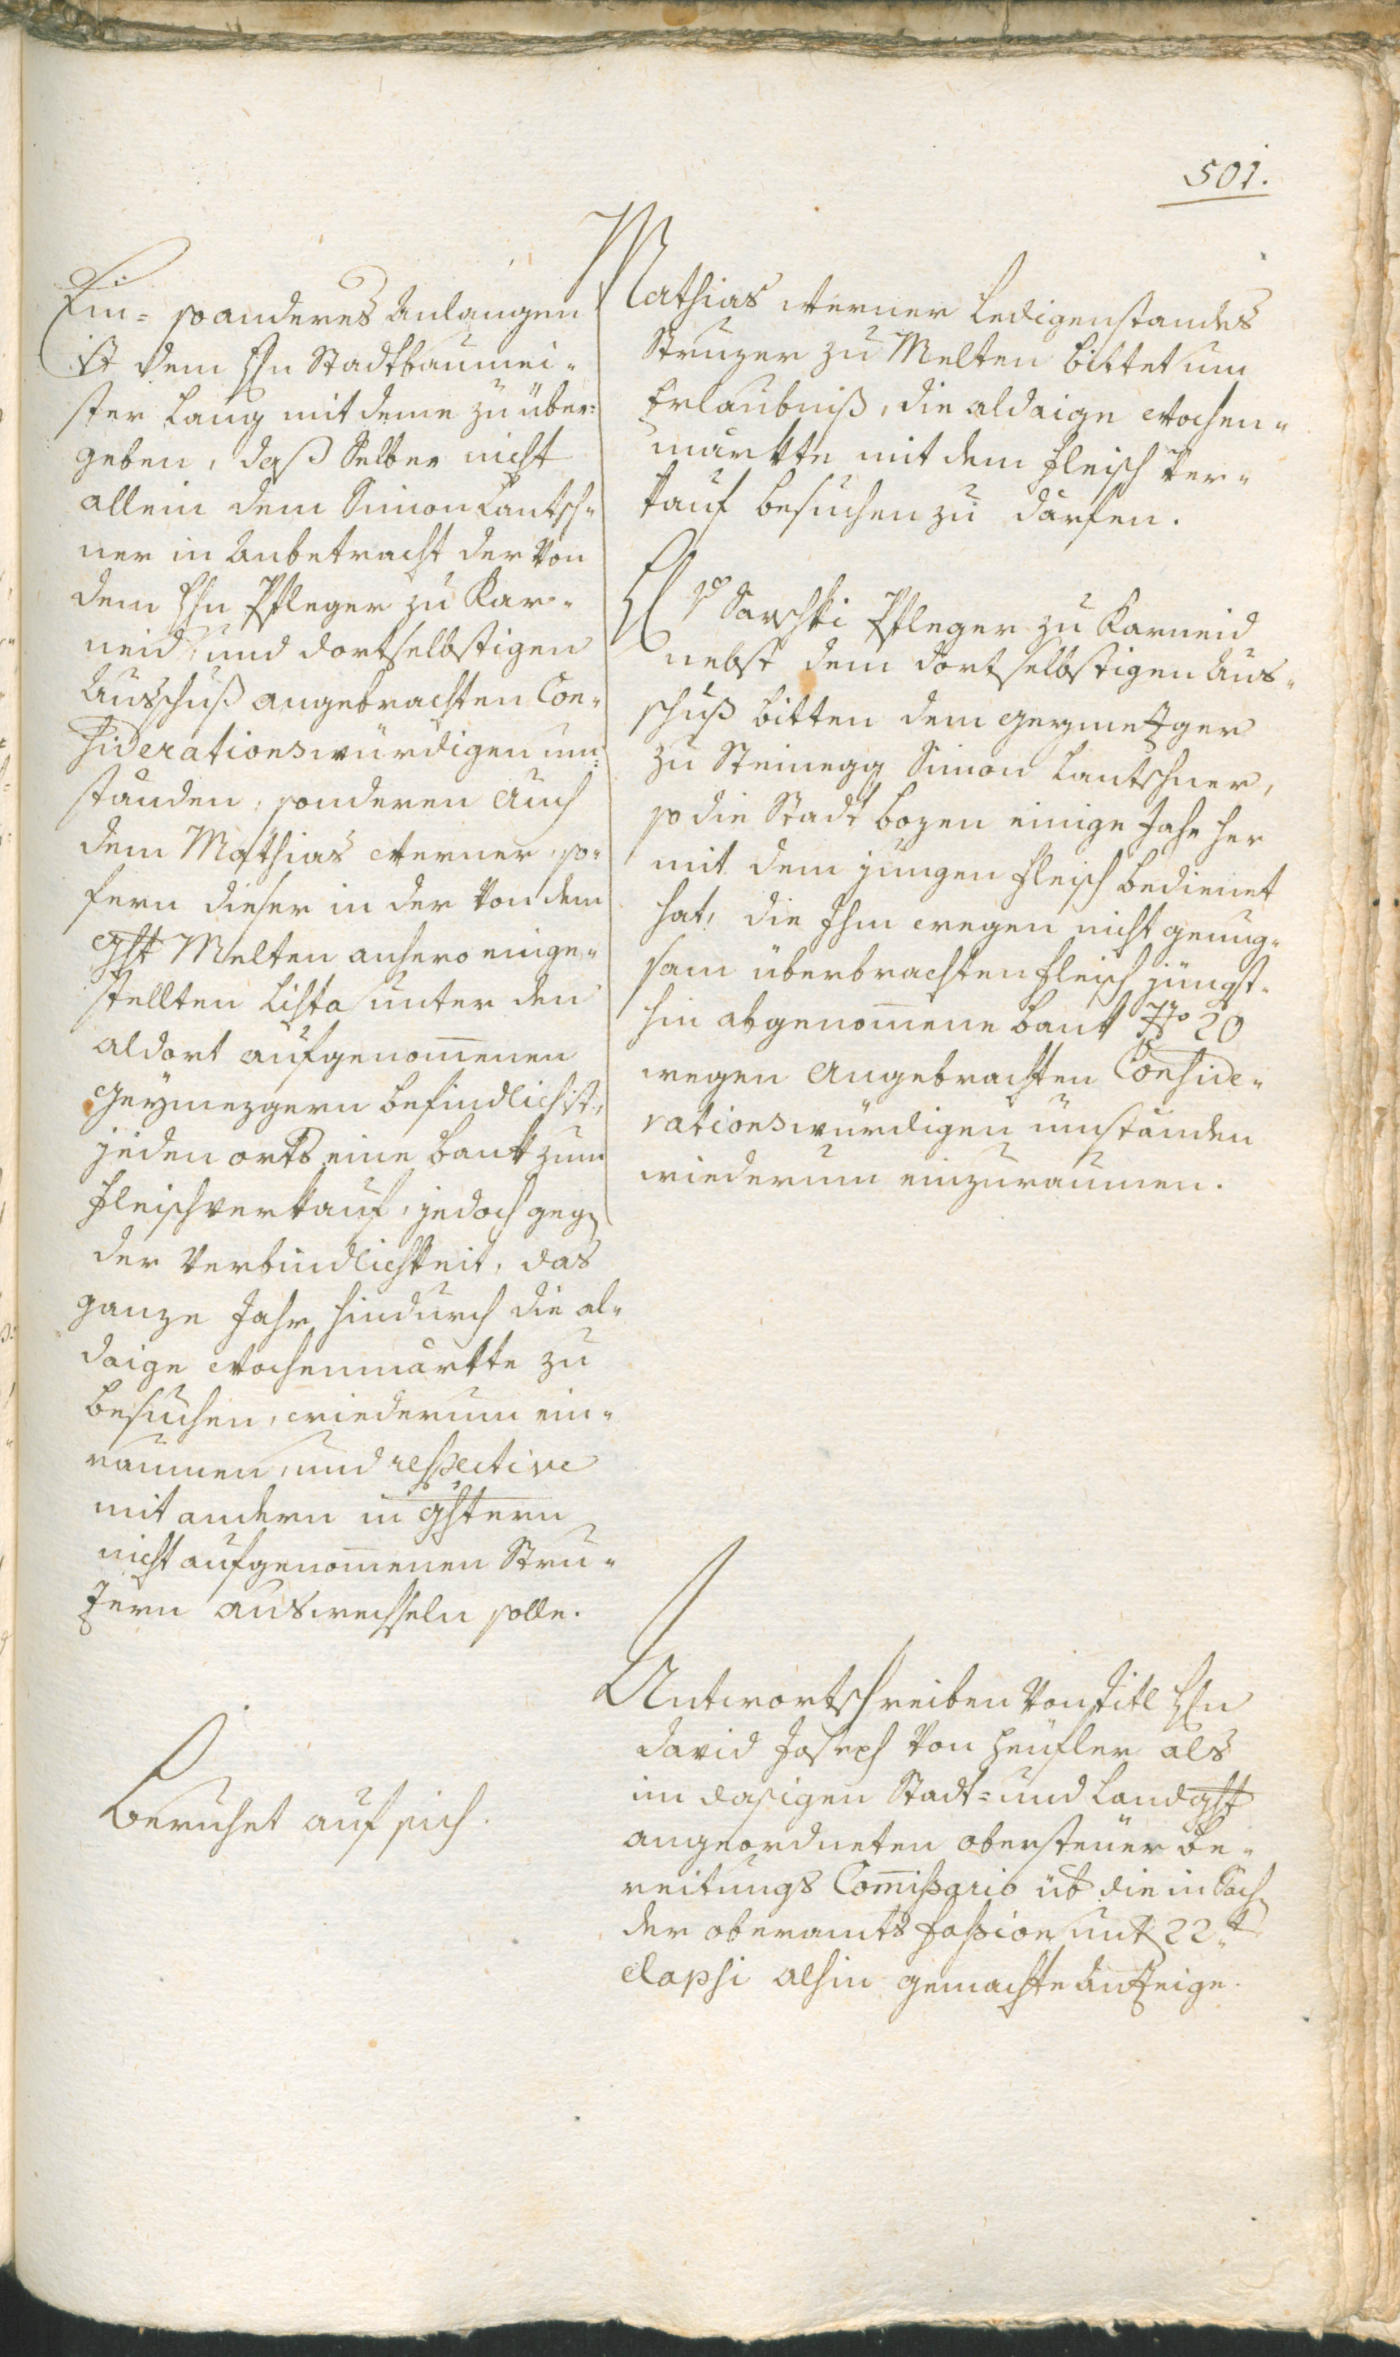 501.
Ein- so anderes Anlangen
ist dem Hn Stadtbaumei-
ster Laug mit deme zu über-
geben, daß Selber nicht
allein dem Simon Lantsch-
ner in Anbetracht der von
dem Hn Pfleger zu Kar-
neid, und dortselbstigen
Ausschuß angebrachten Con-
siderationswürdigen um-
standen, sonderen auch
dem Mathias Werner, so-
fern dieser in der von dem
Ghft Melten anhero einge-
stellten Lista unter den
aldort aufgenomenen
Geymezgern befindlich ist,
jeden orts eine Bank zum
Fleischverkauf, jedoch gegen
der Verbindlichkeit, das
ganze Jahr hindurch die al-
daige Wochenmärkte zu
besuchen, wiederum ein-
raumen, und respective
mit andern in Ghftern
nicht aufgenomenen Stru-
zern auswechseln solle.
Beruhet auf sich.
Mathias Werner Ledigenstandes
Struzer zu Melten bittet um
Erlaubniß, die aldaige Wochen-
märkte mit dem Fleisch ver-
kauf besuchen zu därfen.
Hr Pfleger zu Karneid
nebst dem dortselbstigen Aus-
schuß bitten dem Geymetzger
zu Steinegg Simon Lantschner,
so die Stadt Bozen einige Jahr her
mit dem jungen Fleisch bedienet
hat, die Ihm wegen nicht genug-
sam überbrachten Fleisch jüngst-
hin abgenomene Bank No 20
wegen angebrachten Conside-
rationswürdigen umständen
wiederum einzuraumen.
Antwortschreiben von Titl Hn
David Joseph von Heufler als
im dasigen Stadt- und Landghft
angeordneten obersteuer be-
reitungs Comißario üb die in Sachen
der oberamts Faßion unt 22t
elapsi alhin gemachte Anzeige.